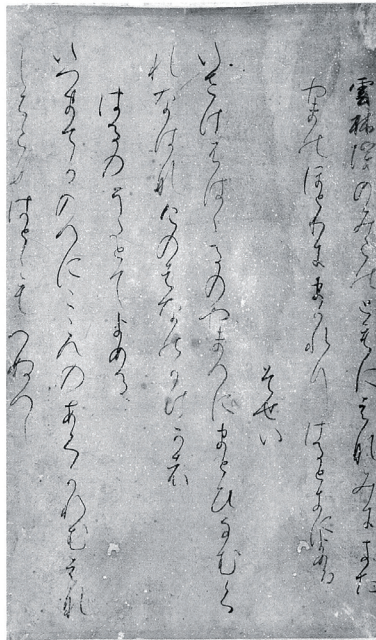 雲林院のみこのもとにはなみにきた
やまのほとりにまかれりけるときによめる
そせい
いさけふはゝるのやまへにまとひなむく
れなはなけのはなのかけかは
はるのうたとてよめる
いつまてかのへにこゝろのあくかれむはな
しちらすはちよもへぬへし